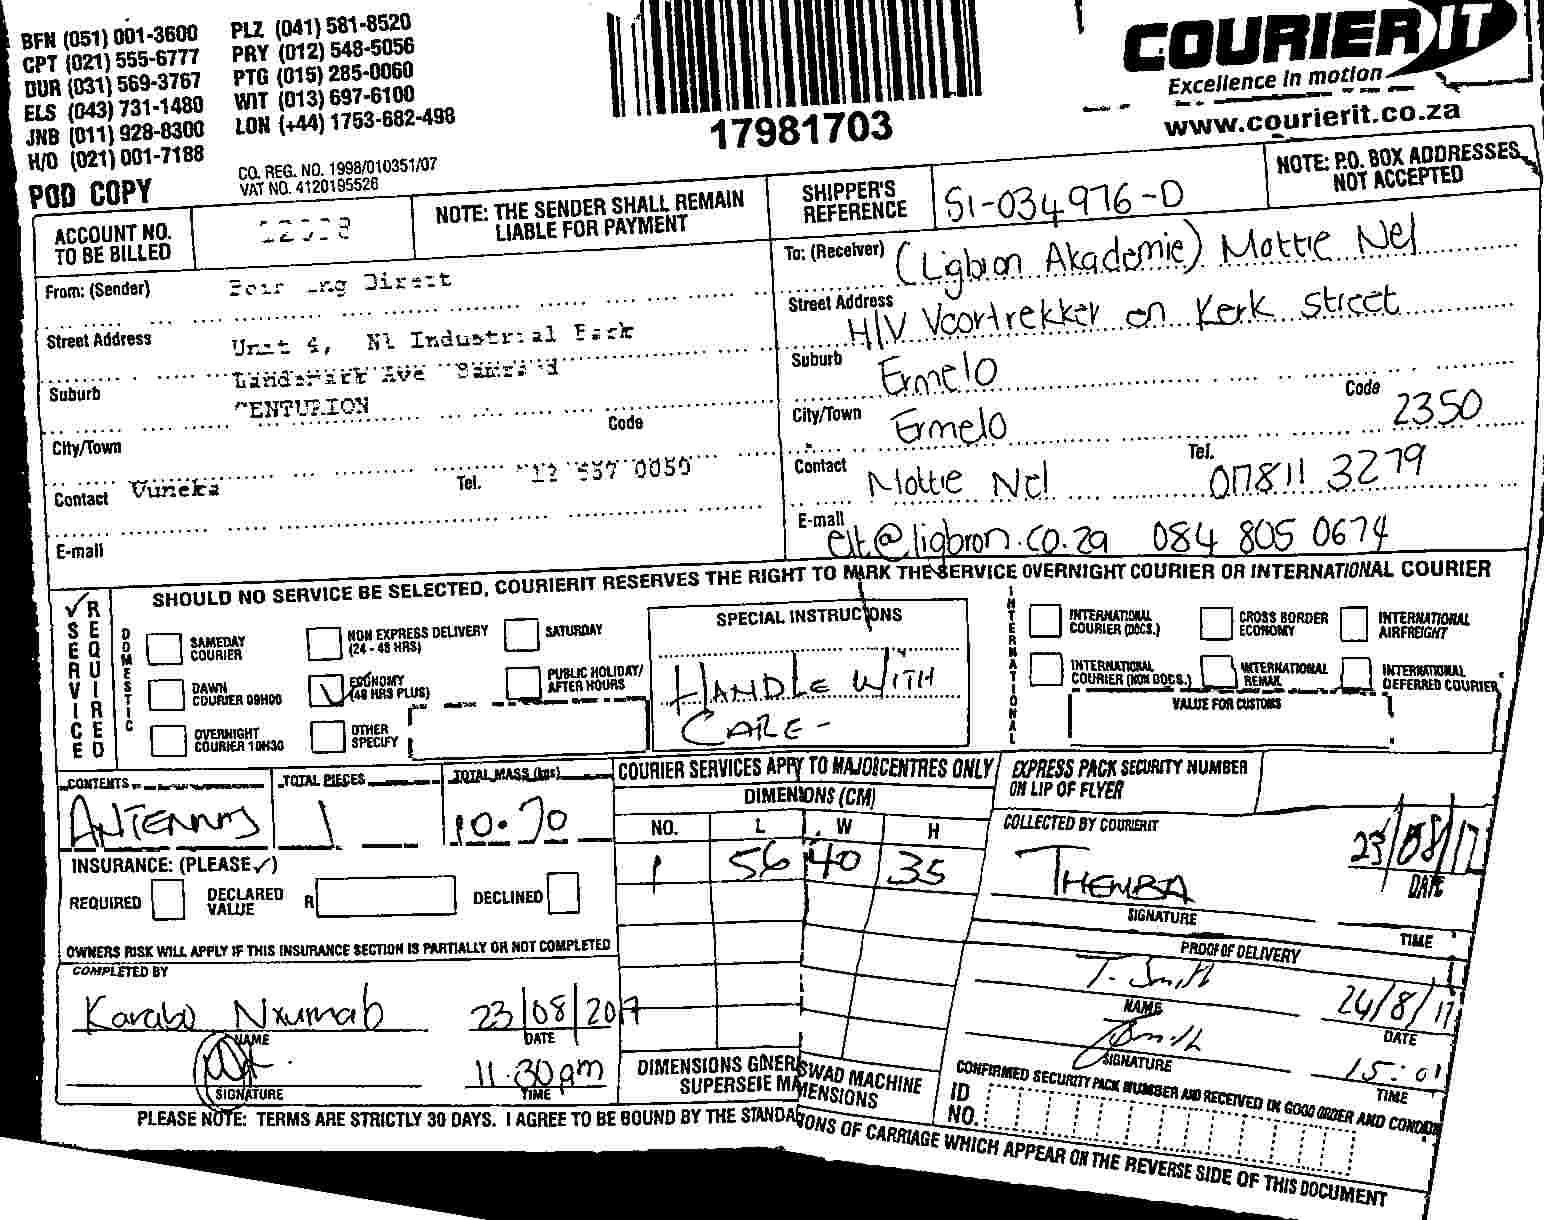 BFN (051) 001-3600 PLZ (041) 581-8520
CPT (021) 555-6777 PRY (012) 548-5056
DUR (031) 569-3767 PTG (015) 285-0060
ELS (043) 731-1480 WIT (013) 697-6100
JNB (011) 928-8300 LON (+44) 1753-682-498
H/O (021) 001-7188
CO. REG. NO. 1998/010351/07
VAT NO. 4120195526
POD COPY
17981703
COURIER IT
Excellence in motion
www.courierit.co.za
ACCOUNT NO.
TO BE BILLED
NOTE: THE SENDER SHALL REMAIN
LIABLE FOR PAYMENT
SHIPPER'S
REFERENCE
SI-034976-D
NOTE: P.O. BOX ADDRESSES
NOT ACCEPTED
From: (Sender) Direct
Street Address Unit 4, N1 Industrial Park
Suburb Landmark Ave Samrand
CENTURION
City/Town Code
Contact Vuneka Tel.
E-mail
To: (Receiver) (Ligbron Akademie) Mottie Nel
Street Address H/V Voortrekker en Kerk Street
Suburb Ermelo
City/Town Ermelo Code 2350
Contact Mottie Nel Tel. 017811 3279
E-mail elt@ligbron.co.za 084 805 0674
SHOULD NO SERVICE BE SELECTED, COURIERIT RESERVES THE RIGHT TO MARK THE SERVICE OVERNIGHT COURIER OR INTERNATIONAL COURIER
SERVICE REQUIRED
DOMESTIC
SAMEDAY
COURIER
NON EXPRESS DELIVERY
(24 - 48 HRS)
SATURDAY
DAWN
COURIER 09H00
ECONOMY
(48 HRS PLUS)
PUBLIC HOLIDAY/
AFTER HOURS
OVERNIGHT
COURIER 10H30
OTHER
SPECIFY
SPECIAL INSTRUCTIONS
HANDLE WITH
CARE -
INTERNATIONAL
INTERNATIONAL
COURIER (DOCS.)
CROSS BORDER
ECONOMY
INTERNATIONAL
AIRFREIGHT
INTERNATIONAL
COURIER (NON DOCS.)
INTERNATIONAL
REMAIL
INTERNATIONAL
DEFERRED COURIER
VALUE FOR CUSTOMS
CONTENTS TOTAL PIECES TOTAL MASS (kgs)
ANTENNAS 1 10.70
COURIER SERVICES APPLY TO MAJOR CENTRES ONLY
DIMENSIONS (CM)
NO. L W H
1 56 40 35
EXPRESS PACK SECURITY NUMBER
ON LIP OF FLYER
COLLECTED BY COURIERIT
THEMBA 23/08/17
SIGNATURE DATE
TIME
INSURANCE: (PLEASE ✓)
REQUIRED DECLARED VALUE R DECLINED
OWNERS RISK WILL APPLY IF THIS INSURANCE SECTION IS PARTIALLY OR NOT COMPLETED
COMPLETED BY
Karabo Nxumalo 23/08/2017
NAME DATE
11.30am
SIGNATURE TIME
PROOF OF DELIVERY
T. Smith 24/8/17
NAME DATE
Smith 15:01
SIGNATURE TIME
CONFIRMED SECURITY PACK NUMBER AND RECEIVED IN GOOD ORDER AND
ID
NO.
SUPERSEDE
PLEASE NOTE: TERMS ARE STRICTLY 30 DAYS. I AGREE TO BE BOUND BY THE
OF CARRIAGE WHICH APPEAR ON THE REVERSE SIDE OF THIS DOCUMENT